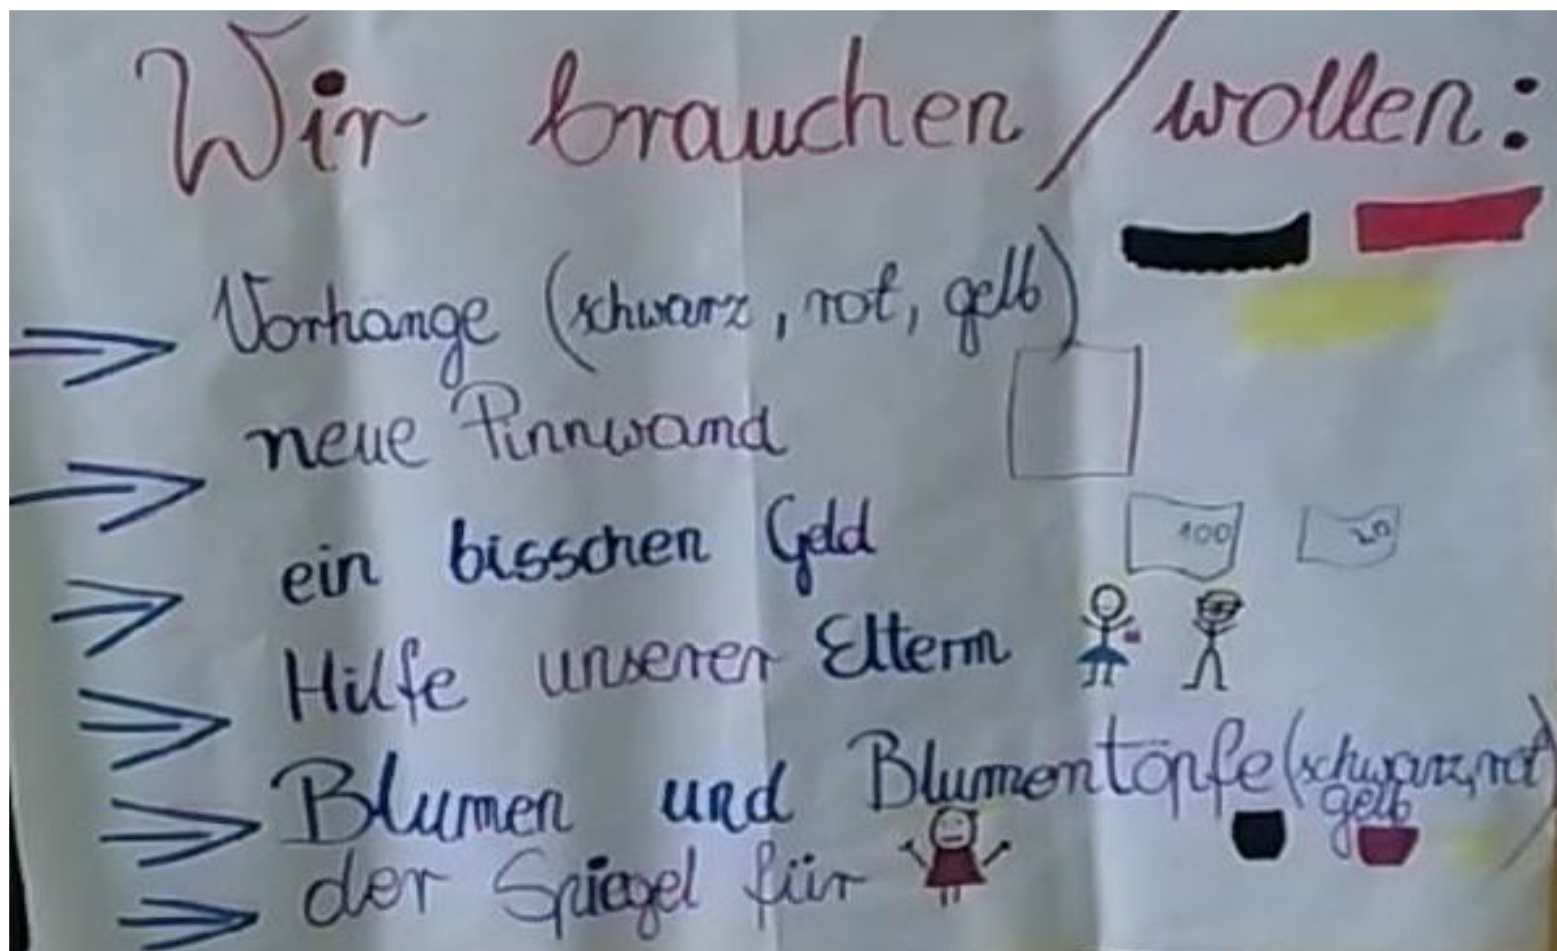 Wir brauchen / wollen:
Vorhange (schwarz, rot, gelb)
neue Pinnwand
ein bisschen Geld
100 20
Hilfe unserer Eltern
Blumen und Blumentöpfe (schwarz, rot
gelb)
der Spiegel für